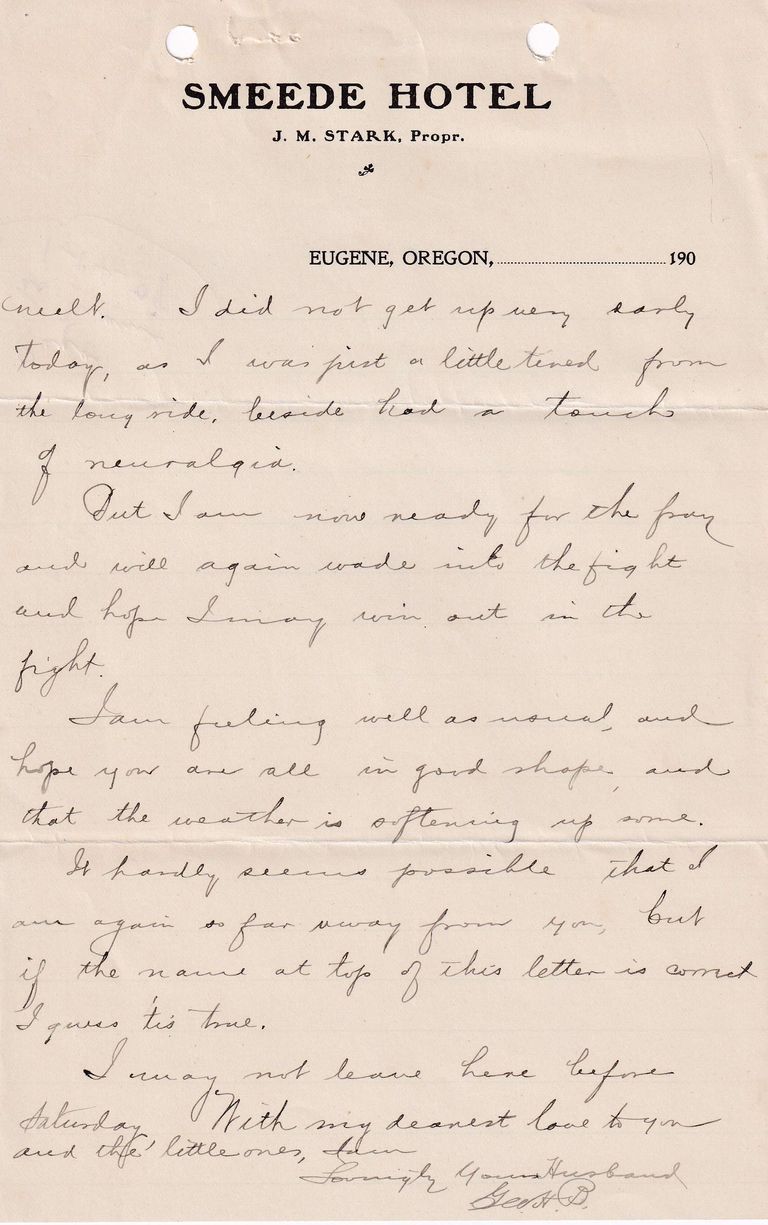 SMEEDE HOTEL
J. M. STARK, Propr.
EUGENE, OREGON, 190
I did not get up very early
today, as I was just a little tired from
the long ride, beside had a touch
of neuralgia.
But I am now ready for the fray
and will again wade into the fight
and hope I may win out in the
fight.
I am feeling well as usual, and
hope you are all in good shape, and
that the weather is softening up some.
It hardly seems possible that I
am again so far away from you, but
if the name at top of this letter is correct
I guess 'tis true.
I may not leave here before
Saturday With my dearest love to you
and the little ones, I am
Lovingly Your Husband
Geo. H. B.